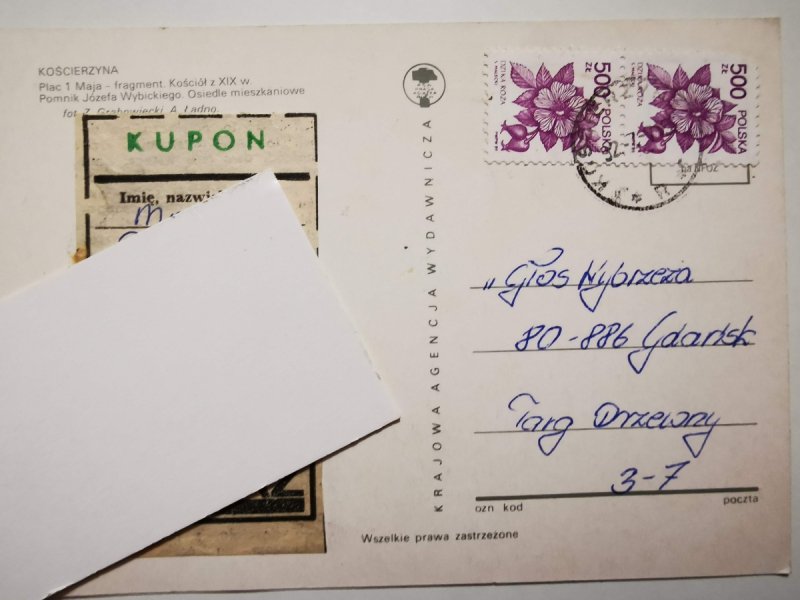 KOŚCIERZYNA
Plac 1 Maja - fragment. Kościół z XIX w.
Pomnik Józefa Wybickiego. Osiedle mieszkaniowe
fot. Z. Grabowiecki, A. Ładno.
KUPON
Imię, nazwi
KRAJOWA AGENCJA WYDAWNICZA
500 ZŁ
POLSKA
DZIKA RÓŻA
500 ZŁ
POLSKA
DZIKA RÓŻA
„Głos Wybrzeża
80-886 Gdańsk
Targ Drzewny
3-7
ozn kod
poczta
Wszelkie prawa zastrzeżone